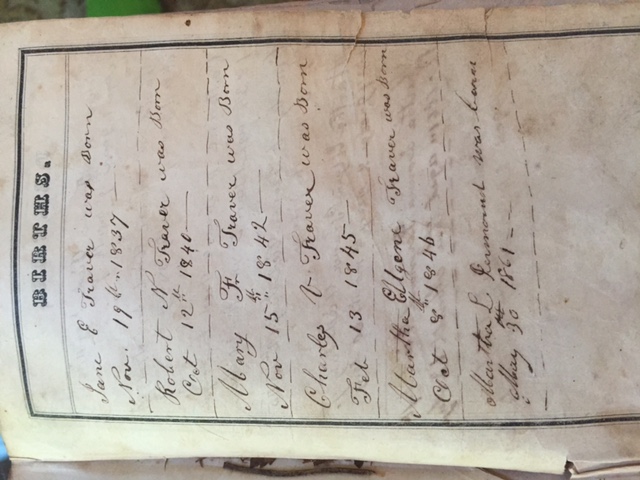 BIRTHS.
Jane E Traver was Born
Nov. 19th 1837
Robert N Traver was Born
Oct 12th 1840
Mary F Traver was Born
Nov 15th 1842
Charles V Traver was Born
Feb 13 1845
Martha Eugene Traver was Born
Oct 8th 1846
Martha L Germond was born
May 30th 1861